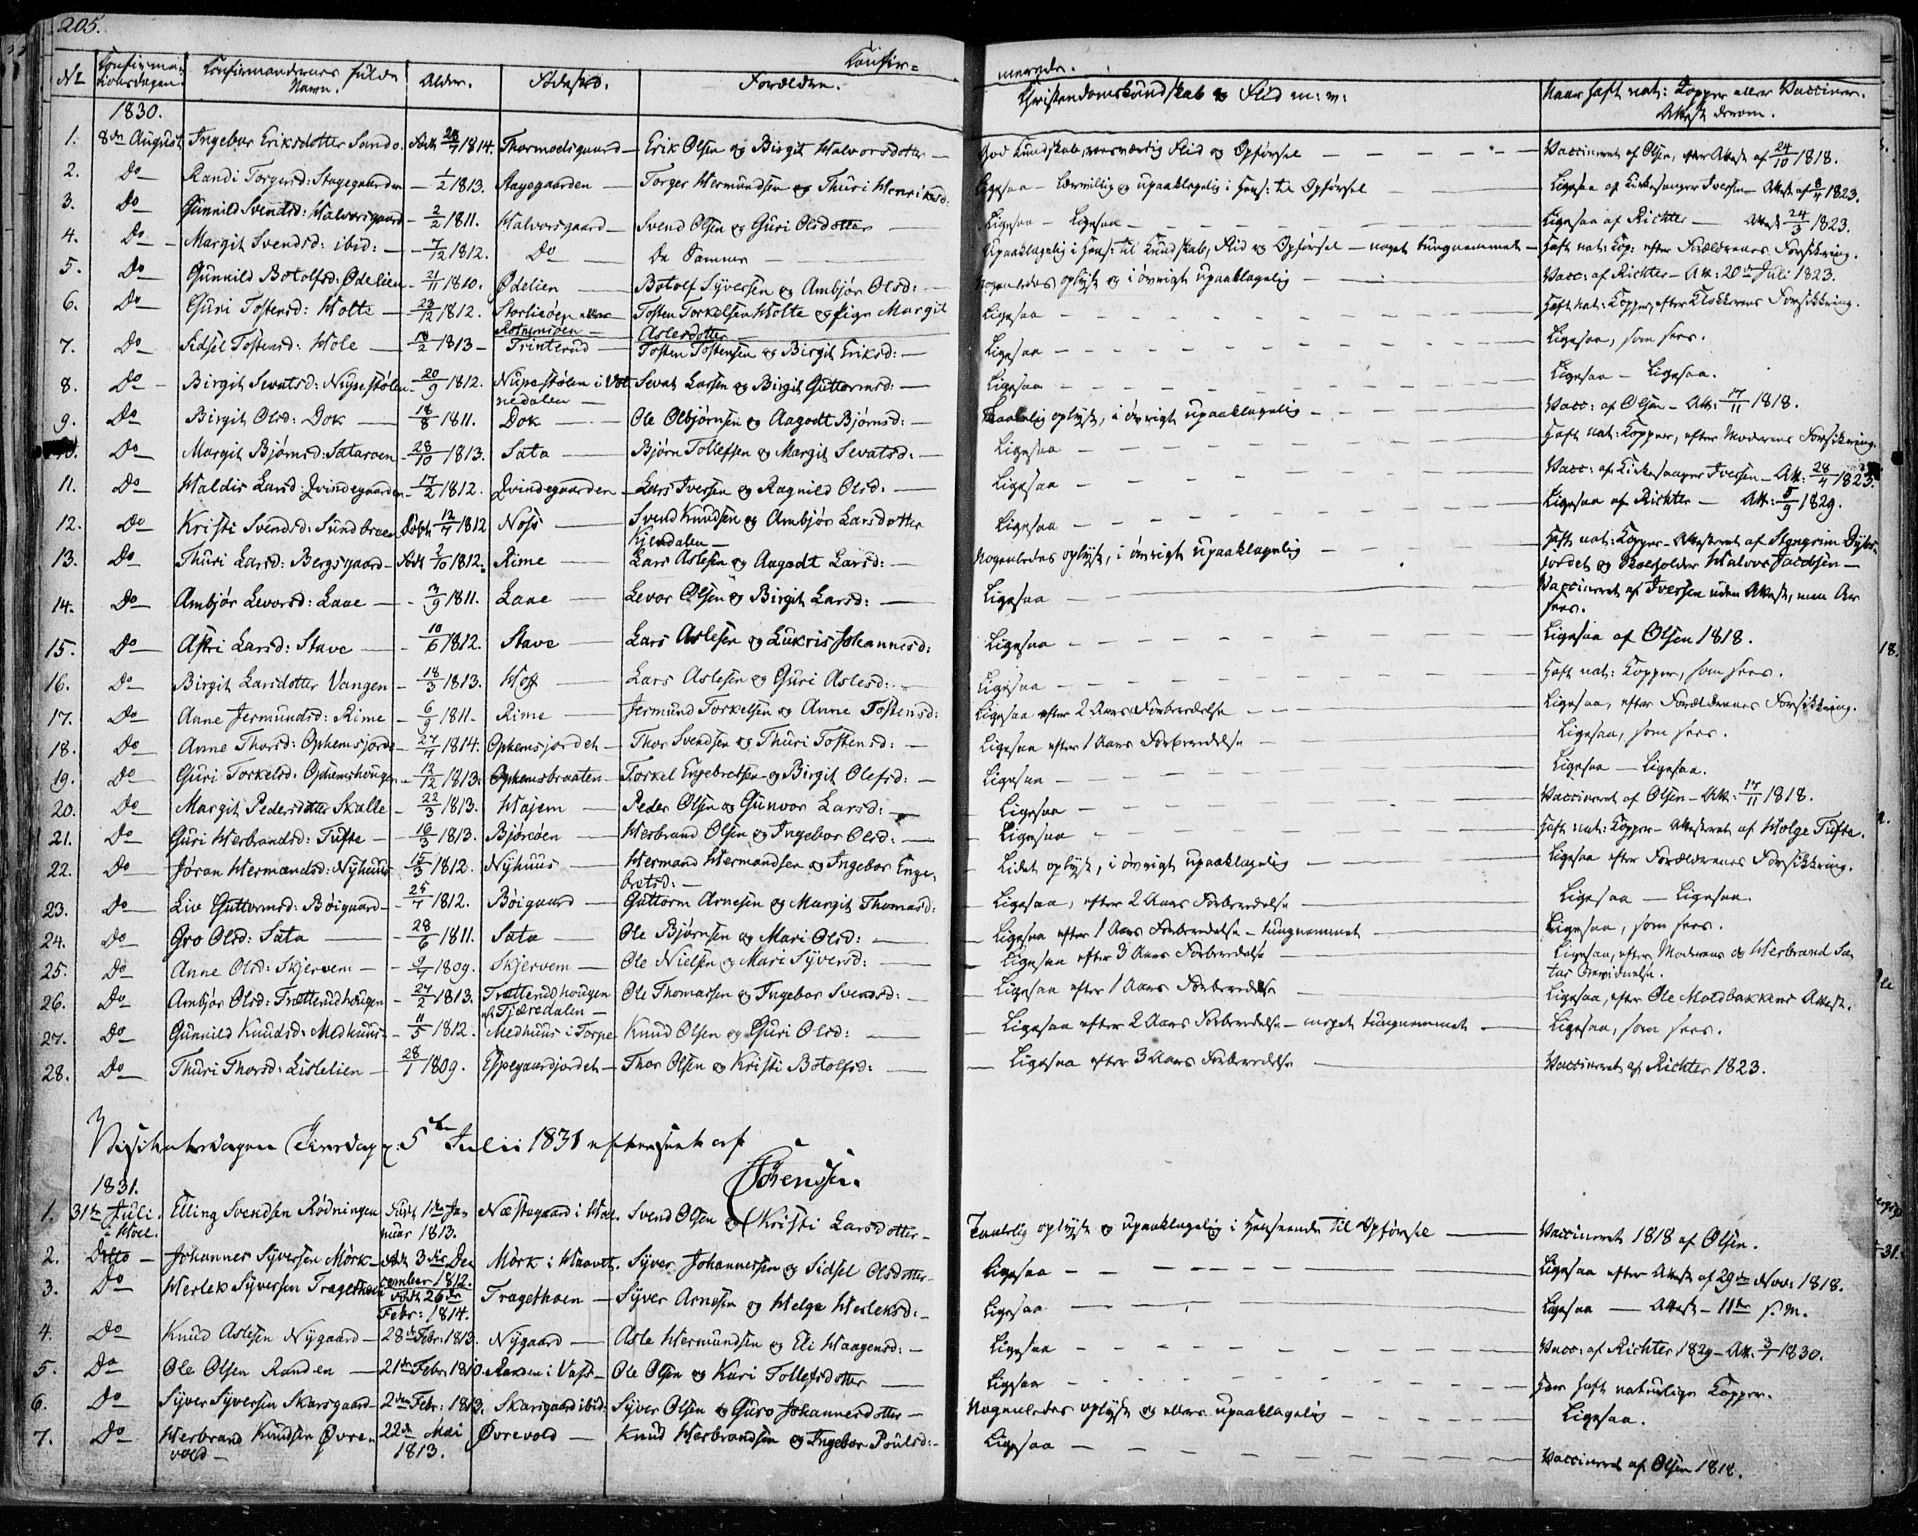 205.
Confir=
merede.
No Confirmationsdagen. Confirmandernes fulde Navn. Alder. Fødested. Forældre. Christendomskundskab og Flid m: v: Naar haft nat: Kopper eller Vaccineret. Attest derom.
1830.
1. 8de August Ingebor Eriksdotter Sando. Født 28/7 1814. Thormodsgaard — Erik Olsen og Birgit Halvorsdotter — God Kundskab, Flid og Opførsel — Vaccineret af Olsen, efter Attest af 24/10 1818.
2. Do Randi Torgersd: Stagegaarden — 1/2 1813. Stagegaarden — Torger Hermundsen og Thuri Henriksd: Ligesaa — lærvillig og upaaklagelig i Hens: til Opførsel — Ligesaa af Kirkesanger Iversen — Attest af 8/4 1823.
3. Do Gunnild Svendsd: Halvorsgaard — 2/2 1811. Halvorsgaard — Svend Olsen og Guri Olsdotter — Ligesaa — Ligesaa — Ligesaa af Richter — Attest 24/3 1823.
4. Do Margit Svendsd: ibid: — 7/12 1812. Do — De Samme — Upaaklagelig i Hens: til Kundskab, Flid og Opførsel — noget tungnemmet — Haft nat: Kop: efter Forældrenes Forsikkring.
5. Do Gunnild Botolfsd: Ødelien — 21/11 1810. Ødelien — Botolf Syversen og Ambjør Olsd: — Nogenledes oplyst og i øvrigt upaaklagelig — Vacc: af Richter — Att: 20de Juli 1823.
6. Do Guri Tostensd: Holte — 23/12 1812. Storlieøen eller Rotnemoen — Tosten Torkelsen Holte og Pige Margit Aslesdotter Ligesaa — Haft nat: Kopper, efter Klokkerens Forsikkring.
7. Do Sidsel Tostensd: Hole — 18/2 1813 — Trinterud — Tosten Tostensen og Birgit Eriksd: — Ligesaa — Ligesaa, som sees.
8. Do Birgit Sevatsd: Nupestølen — 20/9 1812. Nupestølen i Votnedalen — Sevat Larsen og Birgit Guttormsd: — Ligesaa — Ligesaa — Ligesaa.
9. Do Birgit Olsd: Dok — 18/8 1811. Dok — Ole Olbjørnsen og Aagodt Bjørnsd: — Taalelig oplyst, i øvrigt upaaklagelig — Vacc: af Olsen — Att: 17/11 1818.
10. Do Margit Bjørnsd: Sataroen — 28/10 1813. Sata — Bjørn Tollefsen og Margit Sevatsd: — Ligesaa — Haft nat: Kopper, efter Moderens Forsikring.
11. Do Haldis Larsd: Qvindegaarden — 17/2 1812. Qvindegaarden — Lars Iversen og Ragnild Olsd: — Ligesaa — Vacc: af Kirkesanger Iversen — Att: 28/4 1823.
12. Do Kristi Svendsd: Sundbreen Døbt 12/4 1812 Noss — Svend Knudsen og Ambjør Larsdotter Kjendalen — Ligesaa — Ligesaa af Richter — Att: 5/9 1829.
13. Do Thuri Larsd: Bergsgaard — Født 2/10 1812. Rime — Lars Aslesen og Aagodt Larsd: — Nogenledes oplyst, i øvrigt upaaklagelig — Haft nat: Kopper — Attesteret af Stengrim jordet og Skoleholder Halvor Jacobsen —
14. Do Ambjør Levorsd: Laae — 3/9 1811. Laae — Levor Olsen og Birgit Larsd: — Ligesaa — Vaccineret af Iversen uden Attest, men Ar sees.
15. Do Astri Larsd: Stave — 10/6 1812. Stave — Lars Aslesen og Lukris Johannesd: Ligesaa — Ligesaa af Olsen 1818.
16. Do Birgit Larsdotter Vangen — 18/3 1813. Hof — Lars Aslesen og Guri Aslesd: — Ligesaa — Haft nat: Kopper, som sees.
17. Do Anne Jermundsd: Rime — 6/9 1811 — Rime — Jermund Torkelsen og Anne Tostensd: Ligesaa efter 2 Aars Forberedelse — Ligesaa, efter Forældrenes Forsikkring.
18. Do Anne Thorsd: Ophemsjorde — 27/4 1814. Ophemsjordet — Thor Svendsen og Thuri Tostensd: — Ligesaa efter 1 Aars Forberedelse — Ligesaa, som sees.
19. Do Guri Torkelsd: Ophemshougen — 12/12 1813. Ophemsbraaten — Torkel Engebretsen og Birgit Olefsd: — Ligesaa — Ligesaa — Ligesaa.
20. Do Margit Pedersdotter Skalle — 22/3 1813. Hajem — Peder Olsen og Gunvor Larsd: — Ligesaa — Vaccineret af Olsen — Att: 17/11 1818.
21. Do Guri Herbrandsd: Tufte — 16/3 1813. Bjørøen — Herbrand Olsen og Ingebor Olsd: — Ligesaa — Haft nat: Kopper — Attesteret af Holge Tufte.
22. Do Jøran Hermandsd: Nyhuus — 15/3 1812. Nyhuus — Hermand Hermandsen og Ingebor Engebretsd: — Lidet oplyst, i øvrigt upaaklagelig — Ligesaa efter Forældrenes Forsikkring.
23. Do Liv Guttormsd: Bøigaard — 25/4 1812. Bøigaard — Guttorm Arnesen og Margit Thomasd: Ligesaa, efter 2 Aars Forberedelse — Ligesaa — Ligesaa.
24. Do Gro Olsd: Sata — 28/6 1811. Sata — Ole Bjørnsen og Mari Olsd: — Ligesaa efter 1 Aars Forberedelse — tungnemmet — Ligesaa, som sees.
25. Do Anne Olsd: Skjervem — 9/1 1809. Skjervem — Ole Nielsen og Mari Syversd: — Ligesaa efter 3 Aars Forberedelse — Ligesaa, efter Moderens og Herbrand Satas Bevidnelse.
26. Do Ambjør Olsd: Trættenudhougen — 27/2 1813. Trættenudhougen i Tjæredalen — Ole Thomassen og Ingebor Svendsd: — Ligesaa efter 1 Aars Forberedelse — Ligesaa, efter Ole Moldbakkens Attest.
27. Do Gunnild Knudsd: Medhuus — 11/5 1812. Medhuus i Torpe Knud Olsen og Guri Olsd: — Ligesaa efter 2 Aars Forberedelse — meget tungnemmet — Ligesaa, som sees.
28. Do Thuri Thorsd: Lislelien — 28/1 1809. Espegaardjordet — Thor Olsen og Kristi Botolfsd: — Ligesaa efter 3 Aars Forberedelse — Vaccineret af Richter 1823.
Visitatsdagen Tirsdag d: 5te Julii 1831 efterseet af
Sørensen.
1831.
1. 31te Juli. Hoel. Elling Svendsen Rødningen Født 1ste Januar 1813. Næstegaard i Hoel. Svend Olsen og Kristi Larsdotter — Taalelig oplyst og upaaklagelig i Henseende til Opførsel — Vaccineret 1818 af Olsen.
2. Ditto — Johannes Syversen Mørk — Født 3die December 1812. Mørk i Haavet. Syver Johannessen og Sidsel Olsdotter — Ligesaa — Ligesaa efter Attest af 29de Nov: 1818.
3. Do Herlek Syversen Tragethoen Født 26de Febr: 1814. Tragethoen — Syver Arnesen og Helga Herleksd: — Ligesaa — Ligesaa — Attest — 11te s. M.
4. Do Knud Aslesen Nygaard — 28de Febr: 1813. Nygaard — Asle Hermundsen og Eli Haagensd: — Ligesaa — Vacc: af Richter 1829 — Att: 3/7 1830.
5. Do Ole Olsen Randen — 21de Febr: 1810. Randen i Vats — Ole Olsen og Kari Tollefsdotter — Ligesaa — Har haft naturlige Kopper.
6. Do Syver Syversen Skarsgaard — 2den Febr: 1813. Skarsgaard ibid: Syver Olsen og Guro Johannesdotter — Nogenledes oplyst og ellers upaaklagelig — Ligesaa.
7. Do Herbrand Knudsen Øvrevold — 22de Mai 1813. Øvrevold — Knud Herbrandsen og Ingebor Poulsd: — Ligesaa — Vaccineret af Olsen 1818.